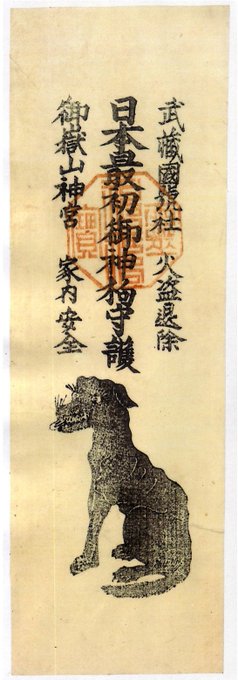 武藏國號社 火盗退除
日本最初御神狗守護
御嶽山神宮 家内安全